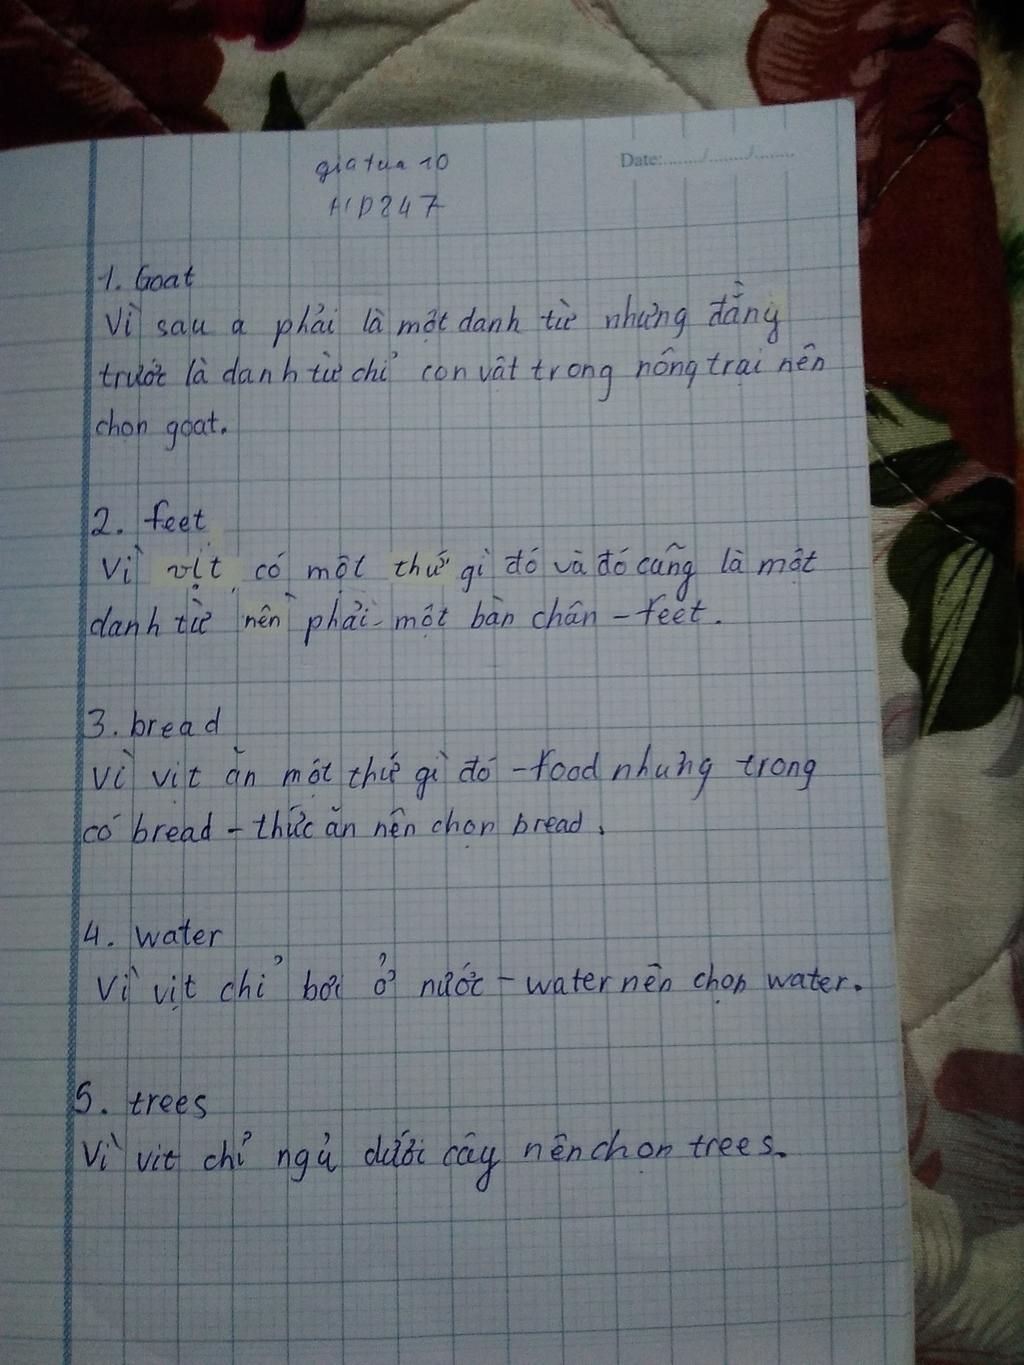 giatua 10
Date:....../....../......
HD247
1. Goat
Vì sau a phải là một danh từ nhưng đằng
trước là danh từ chỉ con vật trong nông trại nên
chọn goat.
2. feet
Vì vịt có một thứ gì đó và đó cũng là một
danh từ nên phải một bàn chân - feet.
3. bread
Vì vịt ăn một thứ gì đó - food nhưng trong
có bread - thức ăn nên chọn bread.
4. water
Vì vịt chỉ bơi ở nước - water nên chọn water.
5. trees
Vì vịt chỉ ngủ dưới cây nên chọn trees.